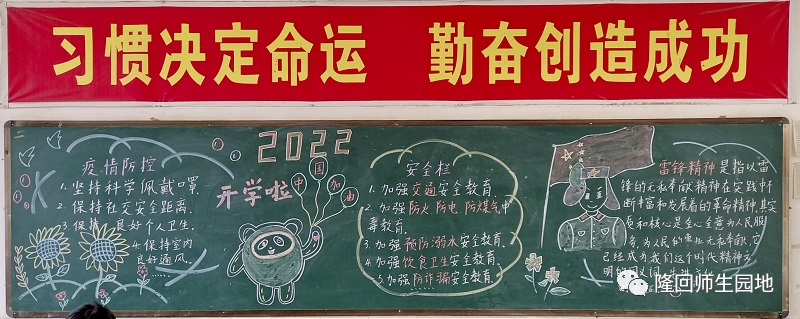 习惯决定命运 勤奋创造成功
二
疫情防控
1.坚持科学佩戴口罩.
2.保持社交安全距离.
3.保持良好个人卫生.
4.保持室内
良好通风.
2022
开学啦
中国加油
安全栏
1.加强交通安全教育.
2.加强防火防电.防煤气中
毒教育.
3.加强预防溺水安全教育.
4.加强饮食卫生安全教育.
5.加强防诈骗安全教育.
雷锋精神是指以雷
锋的无私奉献精神在实践中
断丰富和发展着的革命精神,其实
质和核心是全心全意为人民服
务,为人民的事业无私奉献,它
已经成为我们这个时代精神文
明的同义词
隆回师生园地